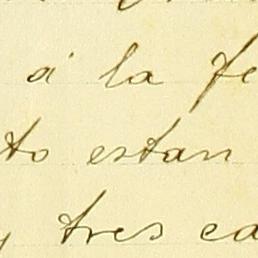 á la fe
to estan
y tres ca